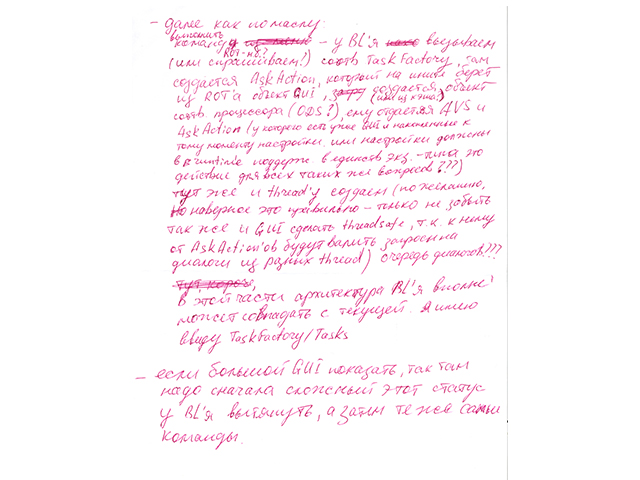 – далее как по маслу:
выполнить
команду – у BL'я вызываем
ROT-на?
(или спрашиваем!) соотв TaskFactory, там
создается AskAction, который на ините берет
из ROT'а объект GUI, создается объект
(или из кэша?)
соотв процессора (ODS?), ему отдается AVS и
AskAction (у которого есть уже GUI и накопленные к
тому моменту настройки. или настройки должны
в runtime поддерж. в единств экз. – типа это
действие для всех таких же вопросов???)
тут же и thread'у создаем (по желанию,
но наверное это правильно – только не забыть
так же и GUI сделать threadsafe, т.к. к нему
от AskAction'ов будут валить запросы на
диалоги из разных thread) очередь диалогов???
тут, короче,
В этой части архитектура BL'я вполне
может совпадать с текущей. Я имею
ввиду TaskFactory/Tasks
– если большой GUI показать, так там
надо сначала сложный этот статус
у BL'я вытянуть, а затем те же самые
команды.